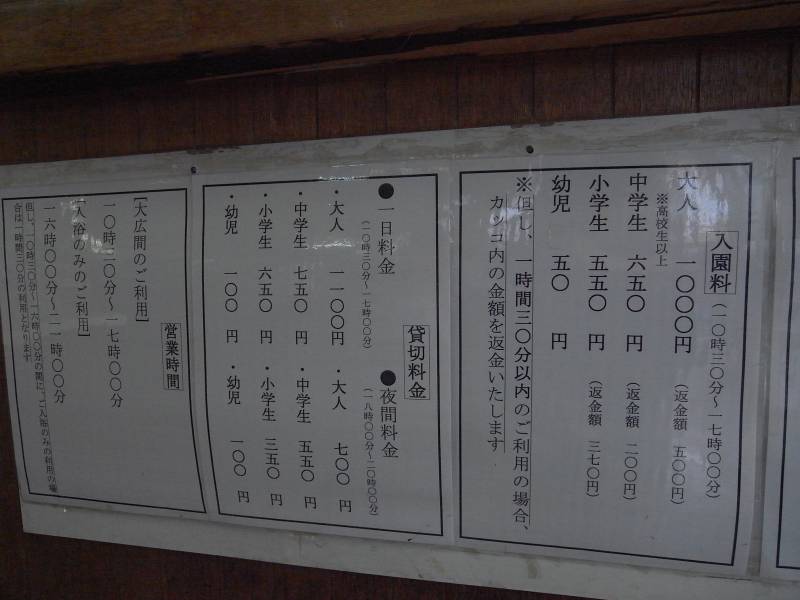 入園料 (一〇時三〇分～一七時〇〇分)
大人 一〇〇〇円 (返金額 五〇〇円)
※高校生以上
中学生 六五〇 円 (返金額 二〇〇円)
小学生 五五〇 円 (返金額 三七〇円)
幼児 五〇 円
※但し、一時間三〇分以内のご利用の場合、
カッコ内の金額を返金いたします
貸切料金
●一日料金
(一〇時三〇分～一七時〇〇分)
・大人 一一〇〇円
・中学生 七五〇 円
・小学生 六五〇 円
・幼児 一〇〇 円
●夜間料金
(一八時〇〇分～二〇時〇〇分)
・大人 七〇〇 円
・中学生 五五〇 円
・小学生 三五〇 円
・幼児 一〇〇 円
営業時間
[大広間のご利用]
一〇時三〇分～一七時〇〇分
[入浴のみのご利用]
一六時〇〇分～二一時〇〇分
但し、一〇時三〇分～一六時〇〇分の間に、ご入浴のみの利用の場
合は一時間三〇分の利用となります